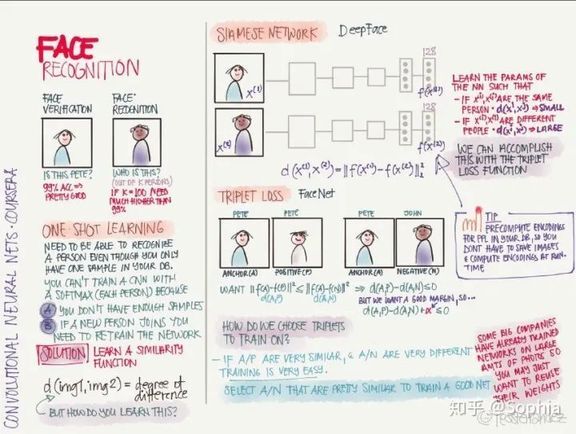 FACE
RECOGNITION
FACE
VERIFICATION
FACE
RECOGNITION
IS THIS PETE?
99% ACC ⇒
PRETTY GOOD
WHO IS THIS?
(OUT OF K PERSONS)
IF K=100 NEED
MUCH HIGHER THAN
99%
ONE SHOT LEARNING
NEED TO BE ABLE TO RECOGNIZE
A PERSON EVEN THOUGH YOU ONLY
HAVE ONE SAMPLE IN YOUR DB.
YOU CAN'T TRAIN A CNN WITH
A SOFTMAX (EACH PERSON) BECAUSE
A YOU DON'T HAVE ENOUGH SAMPLES
B IF A NEW PERSON JOINS YOU
NEED TO RETRAIN THE NETWORK
SOLUTION LEARN A SIMILARITY
FUNCTION
d(img1, img2) = degree of
difference
BUT HOW DO YOU LEARN THIS?
CONVOLUTIONAL NEURAL NETS · COURSERA
SIAMESE NETWORK DeepFace
x⁽¹⁾
128
f(x⁽¹⁾)
x⁽²⁾
128
f(x⁽²⁾)
d(x⁽¹⁾, x⁽²⁾) = ‖f(x⁽¹⁾) - f(x⁽²⁾)‖²₂
LEARN THE PARAMS OF
THE NN SUCH THAT
- IF x⁽ⁱ⁾, x⁽ʲ⁾ ARE THE SAME
PERSON · d(xⁱ, xʲ) → SMALL
- IF x⁽ⁱ⁾, x⁽ʲ⁾ ARE DIFFERENT
PEOPLE · d(xⁱ, xʲ) = LARGE
WE CAN ACCOMPLISH
THIS WITH THE TRIPLET
LOSS FUNCTION
TRIPLET LOSS FaceNet
PETE PETE PETE JOHN
ANCHOR (A) POSITIVE (P) ANCHOR (A) NEGATIVE (N)
WANT ‖f(A)-f(P)‖² ≤ ‖f(A)-f(N)‖² ⇒ d(A,P)-d(A,N) ≤ 0
d(A,P) d(A,N)
BUT WE WANT A GOOD MARGIN, SO...
d(A,P)-d(A,N)+α ≤ 0
TIP
PRECOMPUTE ENCODINGS
FOR PPL IN YOUR DB, SO YOU
DONT HAVE TO SAVE IMAGES
& COMPUTE ENCODINGS AT RUN-
TIME
HOW DO WE CHOOSE TRIPLETS
TO TRAIN ON?
- IF A/P ARE VERY SIMILAR, & A/N ARE VERY DIFFERENT
TRAINING IS VERY EASY.
SELECT A/N THAT ARE PRETTY SIMILAR TO TRAIN A GOOD NET
SOME BIG COMPANIES
HAVE ALREADY TRAINED
NETWORKS ON LARGE
AMTS OF PHOTOS SO
YOU MAY JUST
WANT TO REUSE
THEIR WEIGHTS
知乎 @Sophia